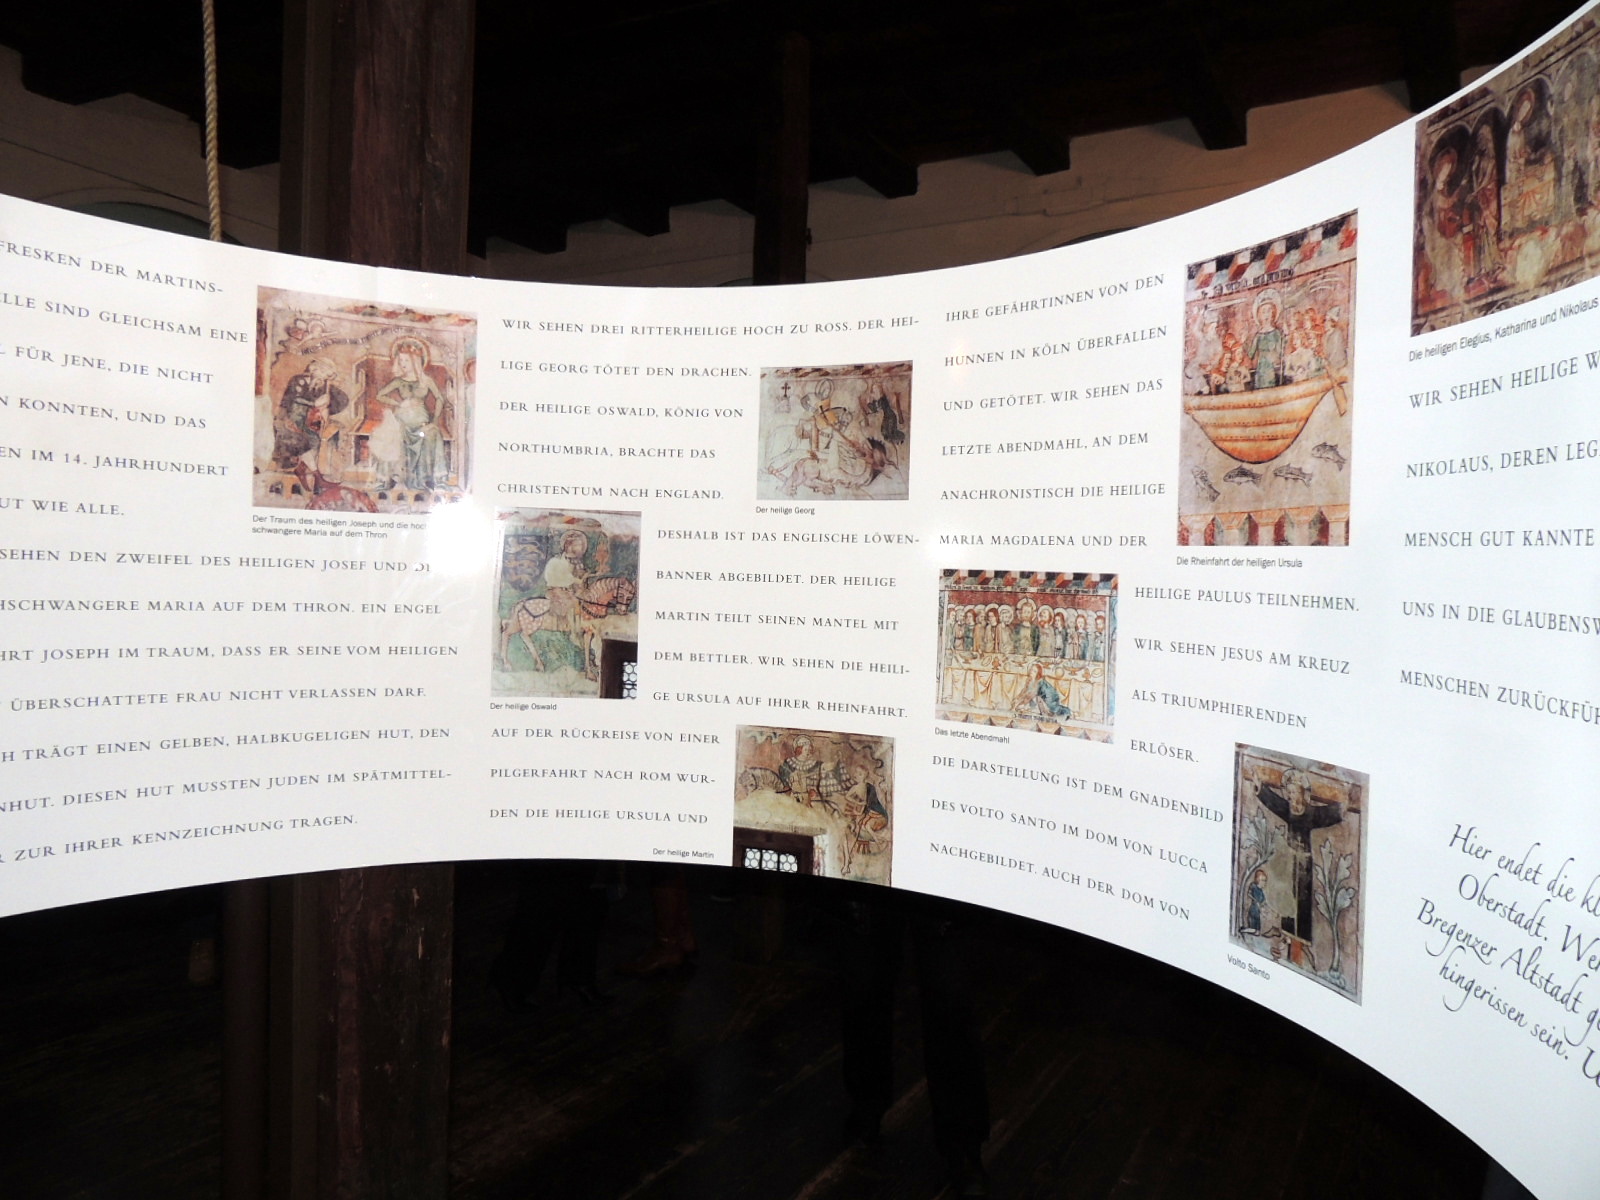 FRESKEN DER MARTINS-
SIND GLEICHSAM EINE
FÜR JENE, DIE NICHT
KONNTEN, UND DAS
IM 14. JAHRHUNDERT
WIE ALLE.
Der Traum des heiligen Joseph und die
schwangere Maria auf dem Thron
SEHEN DEN ZWEIFEL DES HEILIGEN JOSEF UND
MARIA AUF DEM THRON. EIN ENGEL
JOSEPH IM TRAUM, DASS ER SEINE VOM HEILIGEN
ÜBERSCHATTETE FRAU NICHT VERLASSEN DARF.
TRÄGT EINEN GELBEN, HALBKUGELIGEN HUT, DEN
DIESEN HUT MUSSTEN JUDEN IM SPÄTMITTEL-
ZUR IHRER KENNZEICHNUNG TRAGEN.
WIR SEHEN DREI RITTERHEILIGE HOCH ZU ROSS. DER HEI-
LIGE GEORG TÖTET DEN DRACHEN.
DER HEILIGE OSWALD, KÖNIG VON
NORTHUMBRIA, BRACHTE DAS
CHRISTENTUM NACH ENGLAND.
Der heilige Georg
DESHALB IST DAS ENGLISCHE LÖWEN-
BANNER ABGEBILDET. DER HEILIGE
MARTIN TEILT SEINEN MANTEL MIT
DEM BETTLER. WIR SEHEN DIE HEILI-
GE URSULA AUF IHRER RHEINFAHRT.
Der heilige Oswald
AUF DER RÜCKREISE VON EINER
PILGERFAHRT NACH ROM WUR-
DEN DIE HEILIGE URSULA UND
Der heilige Martin
IHRE GEFÄHRTINNEN VON DEN
HUNNEN IN KÖLN ÜBERFALLEN
UND GETÖTET. WIR SEHEN DAS
LETZTE ABENDMAHL, AN DEM
ANACHRONISTISCH DIE HEILIGE
MARIA MAGDALENA UND DER
Die Rheinfahrt der heiligen Ursula
HEILIGE PAULUS TEILNEHMEN.
WIR SEHEN JESUS AM KREUZ
ALS TRIUMPHIERENDEN
ERLÖSER.
Das letzte Abendmahl
DIE DARSTELLUNG IST DEM GNADENBILD
DES VOLTO SANTO IM DOM VON LUCCA
NACHGEBILDET. AUCH DER DOM VON
Volto Santo
Die heiligen Elegius, Katharina und Nikolaus
WIR SEHEN HEILIGE
NIKOLAUS, DEREN
MENSCH GUT KANNTE
UNS IN DIE
MENSCHEN
Hier endet die
Oberstadt.
Bregenzer Altstadt
hingerissen sein.